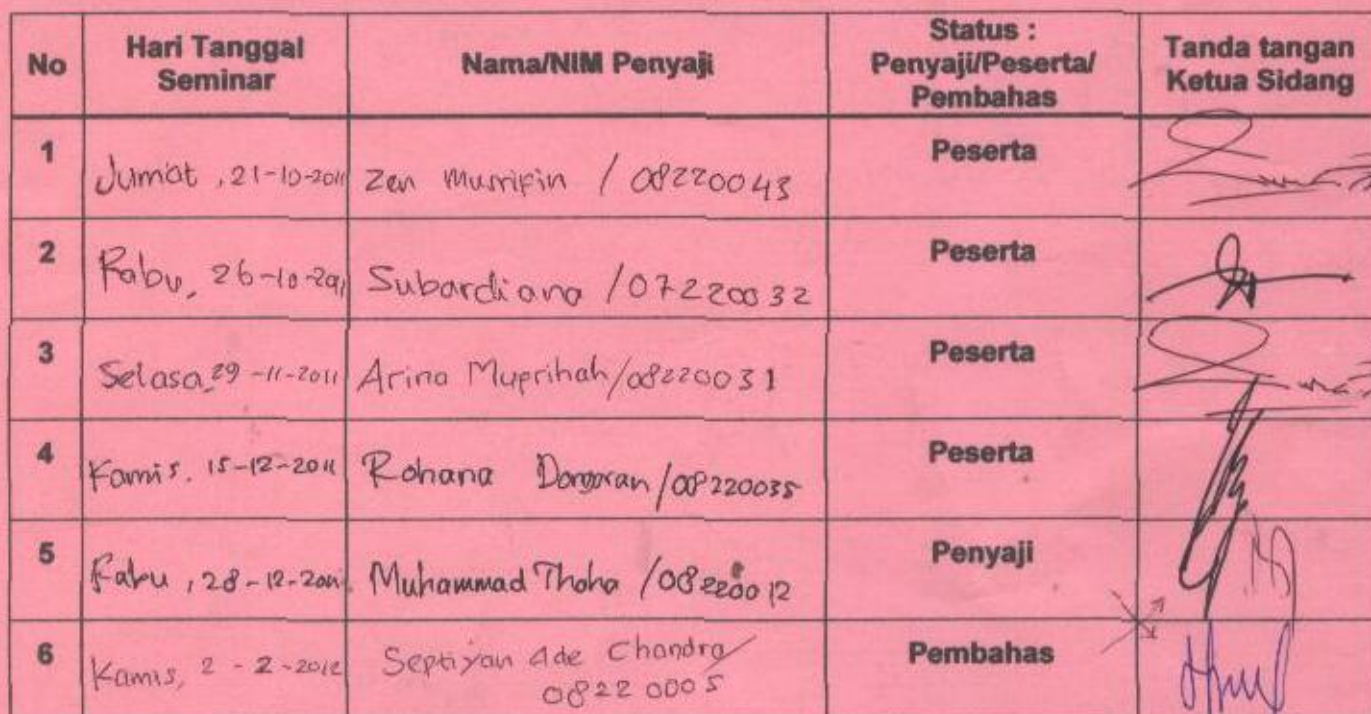 No Hari Tanggal Seminar Nama/NIM Penyaji Status : Penyaji/Peserta/ Pembahas Tanda tangan Ketua Sidang
1 Jumat, 21-10-2011 Zen Musrifin / 08220043 Peserta
2 Rabu, 26-10-2011 Subardiana / 07220032 Peserta
3 Selasa, 29-11-2011 Arina Muprihah/08220031 Peserta
4 Kamis, 15-12-2011 Rohana /08220035 Peserta
5 Rabu, 28-12-2011 Muhammad Thoha /08220012 Penyaji
6 Kamis, 2-2-2012 Septiyan Ade Chandra/ 08220005 Pembahas